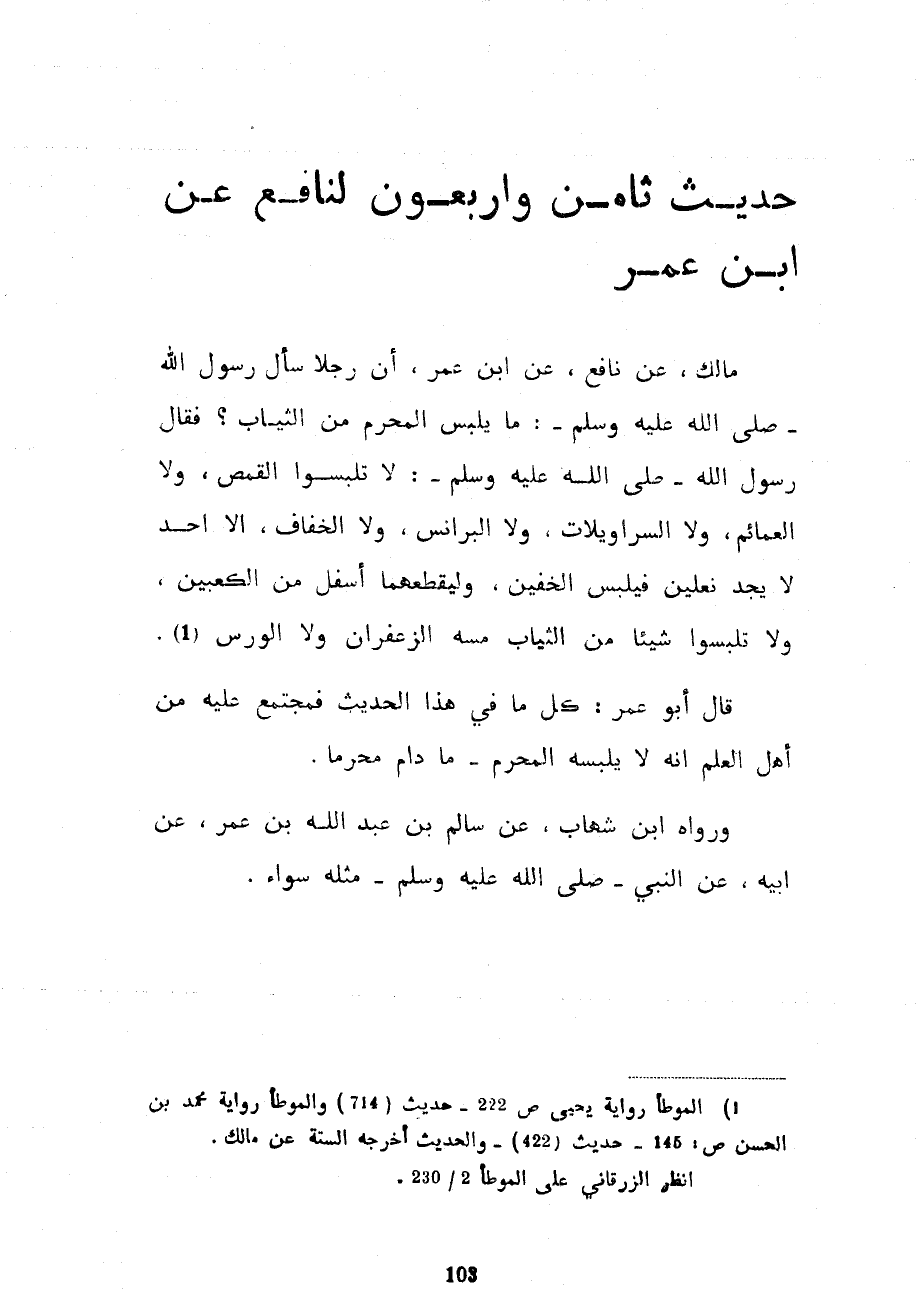 حديث ثامن واربعون لنافع عن
ابن عمر
مالك ، عن نافع ، عن ابن عمر ، أن رجلا سأل رسول الله
ـ صلى الله عليه وسلم ـ : ما يلبس المحرم من الثياب ؟ فقال
رسول الله ـ صلى الله عليه وسلم ـ : لا تلبسوا القمص ، ولا
العمائم ، ولا السراويلات ، ولا البرانس ، ولا الخفاف ، الا احد
لا يجد نعلين فيلبس الخفين ، وليقطعهما أسفل من الكعبين ،
ولا تلبسوا شيئا من الثياب مسه الزعفران ولا الورس (1) .
قال أبو عمر : كل ما في هذا الحديث فمجتمع عليه من
أهل العلم انه لا يلبسه المحرم ـ ما دام محرما .
ورواه ابن شهاب ، عن سالم بن عبد الله بن عمر ، عن
ابيه ، عن النبي ـ صلى الله عليه وسلم ـ مثله سواء .
1) الموطأ رواية يحيى ص 222 ـ حديث (714) والموطأ رواية محمد بن
الحسن ص : 145 ـ حديث (422) ـ والحديث أخرجه الستة عن مالك .
انظر الزرقاني على الموطأ 2 / 230 .
103